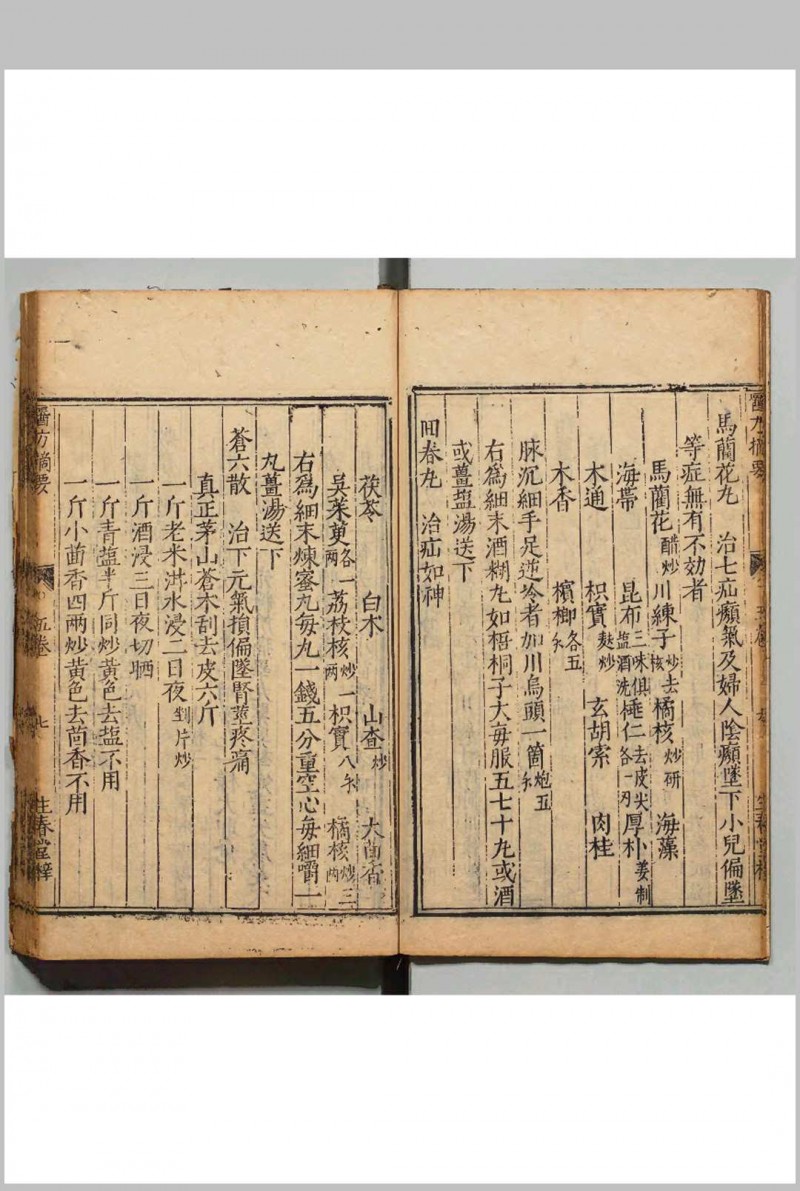 馬蘭花丸　治七疝癩氣及婦人陰癩墜下小兒偏墜
等症無有不効者
馬蘭花醋炒　川練子炒去核　橘核炒研　海藻
海帶　昆布三味俱塩酒洗　桃仁去皮尖各一刄　厚朴姜制
木通　枳實麩炒　玄胡索　肉桂
木香　檳榔各五
脉沉細手足逆冷者加川烏頭一箇炮五
右爲細末酒糊丸如梧桐子大毎服五七十丸或酒
或薑塩湯送下
田春丸　治疝如神
茯苓　白木　山查炒　大茴香
吳茱萸各一两　荔枝核炒一两　枳實八　橘核炒三两
右爲細末煉蜜丸毎丸一錢五分重空心毎細嚼一
丸薑湯送下
蒼六散　治下元氣損偏墜腎莖疼痛
真正茅山蒼木刮去皮六斤
一斤老米泔水浸二日夜剉片炒
一斤酒浸三日夜切晒
一斤青塩半斤同炒黃色去塩不用
一斤小茴香四两炒黃色去茴香不用
醫方摘要
五卷
七
生春堂梓